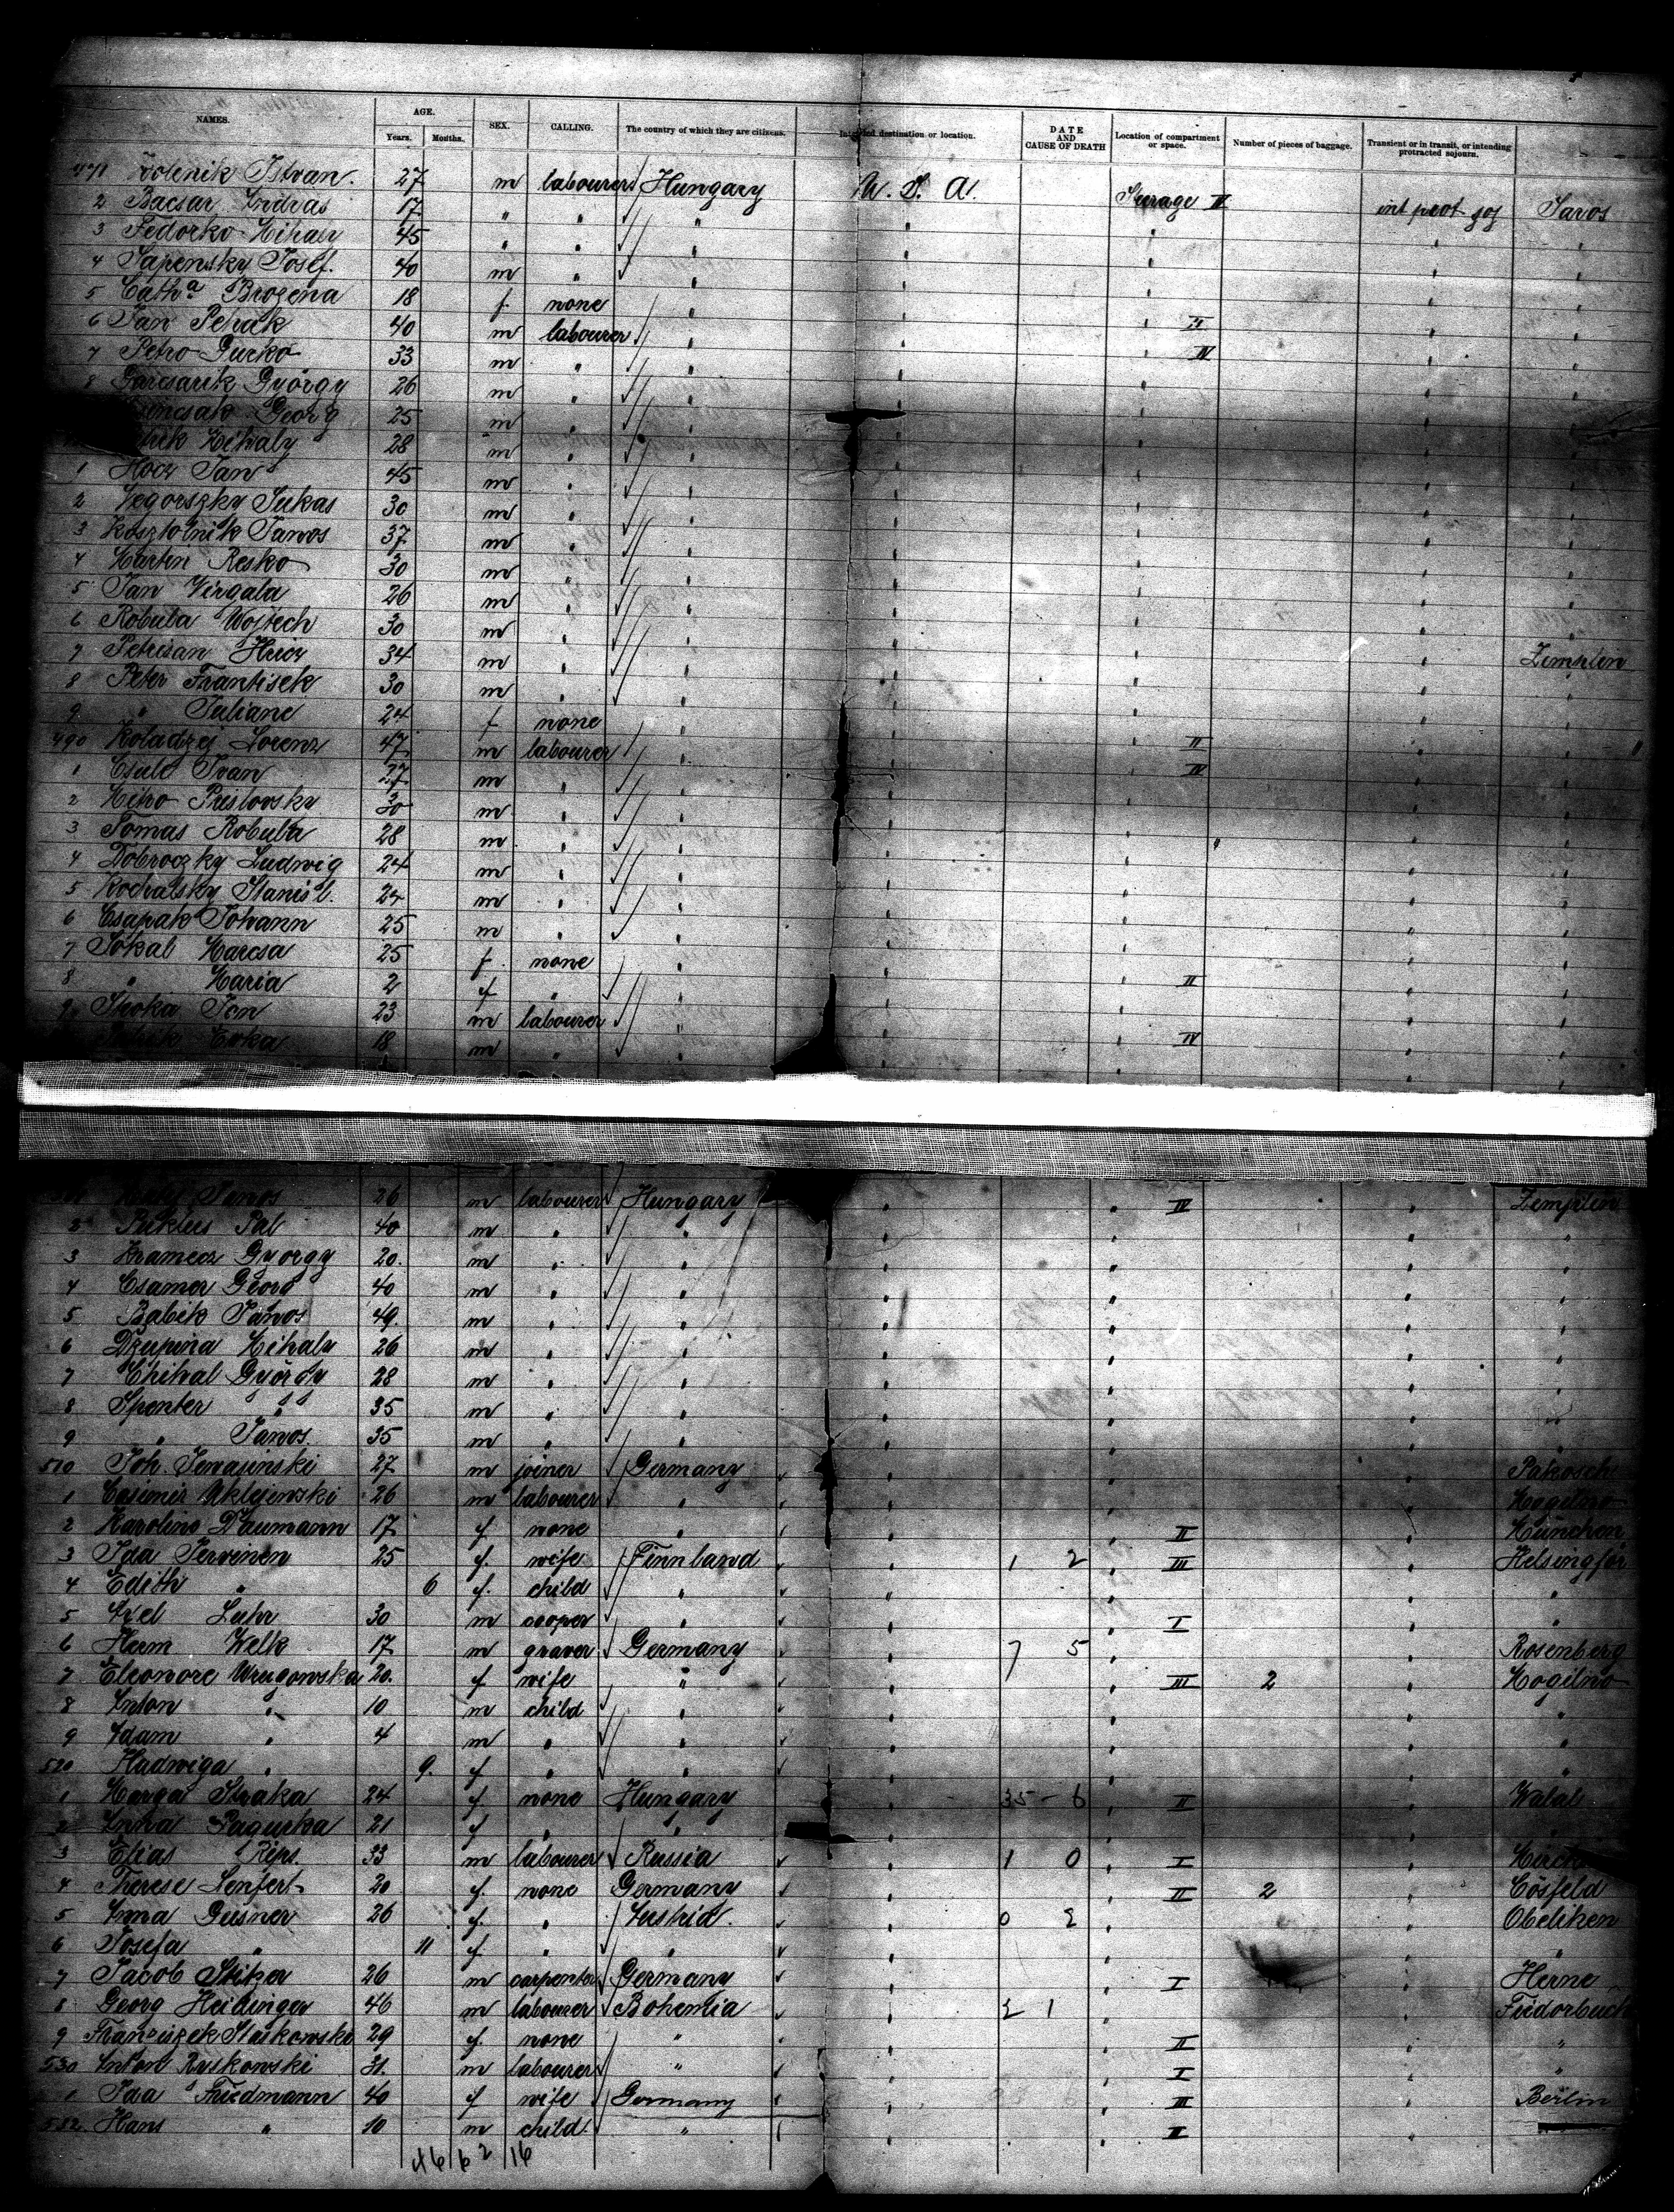 NAMES. AGE. SEX. CALLING. The country of which they are citizens. Intended destination or location. DATE AND CAUSE OF DEATH Location of compartment or space. Number of pieces of baggage. Transient or in transit, or intending protracted sojourn.
Years. Months.
471 Istvan. 27 m labourer Hungary U. S. A. Steerage IV int prot soj Saros
2 Bacsar Andras 17 " " " " " " "
3 Fedorko Mihaly 45 " " " " " " "
4 Sapensky Josef. 40 m " " " " " "
5 Cath.a Brozena 18 f. none " " " " "
6 Jan Petrak 40 m labourer " " II " "
7 Petro Gurko 33 m " " " IV " "
8 Garcsarik György 26 m " " " " " "
Georg 25 m " " " " " "
Mihaly 28 m " " " " " "
1 Hocz Jan 45 m " " " " " "
2 Vegorszky Lukas 30 m " " " " " "
3 Kosztolnik Janos 37 m " " " " " "
4 Martin Resko 30 m " " " " " "
5 Jan Virgala 26 m " " " " " "
6 Robula Wojtech 30 m " " " " " "
7 Petrisan Hricz 34 m " " " " " Zemplin
8 Peter Frantisek 30 m " " " " " "
9 " Juliane 24 f none " " " " "
490 Koladzej Lorenz 47 m labourer " " II " "
1 Csule Ivan 27 m " " " IV " "
2 Miho 30 m " " " " " "
3 Tomas Robula 28 m " " " " " "
4 Dobroczky Ludwig 24 m " " " " " "
5 Stanisl. 24 m " " " " " "
6 Csapak Johann 25 m " " " " " "
7 Sokal Marcsa 25 f. none " " " " "
8 " Maria 2 f " " " II " "
9 Sroka Jon 23 m labourer " " " " "
18 m " " " IV " "
Janos 26 m labourer Hungary " " IV " Zemplin
2 Puklus Pal 40 m " " " " " "
3 Kramecz György 20. m " " " " " "
4 Csamor Georg 40 m " " " " " "
5 Babik Janos 49. m " " " " " "
6 Dzupina Mihaly 26 m " " " " " "
7 Chihal György 28 m " " " " " "
8 Spenter " 35 m " " " " " "
9 " Janos. 35 m " " " " " "
510 Joh. 27 m joiner Germany " " " Pakosch
1 Casimir 26 m labourer " " " " Mogilno
2 Karoline Daumann 17 f none " " II " München
3 Ida Jervinen 25 f. wife Finnland " 1 2 III " Helsingfor
4 Edith " 6 f. child " " " " "
5 Axel Luhr 30 m cooper " " I " "
6 Herm Welk 17 m graver Germany " 7 5 " " Rosenberg
7 Eleonore Wrugowska 20. f wife " " III 2 " Mogilno
8 Anton " 10 m child " " " " "
9 Adam " 4 m " " " " " "
520 Hadwiga " 9. f " " " " " "
1 Marga Straka 24 f none Hungary " 35 - 6 II " Walal
2 Anna 21 f " " " " " "
3 Elias 33 m labourer Russia " 1 0 I "
4 Therese Senfert 20 f. none Germany " II 2 " Cösfeld
5 Anna Geisner 26 f. " Austria. " 0 2 " " Obeliken
6 Josefa " 11 f " " " " " "
7 Jacob Stiker 26 m carpenter Germany " I " Herne
8 Georg Heidinger 46 m labourer Bohemia " 2 1 " "
9 Franziszek 29 f. none " " II " "
530 Anton Ruskowski 31. m labourer " " I " "
1 Ida Friedmann 40 f wife Germany " III " Berlin
532 Hans " 10 m child " " II "
46 6 2 16